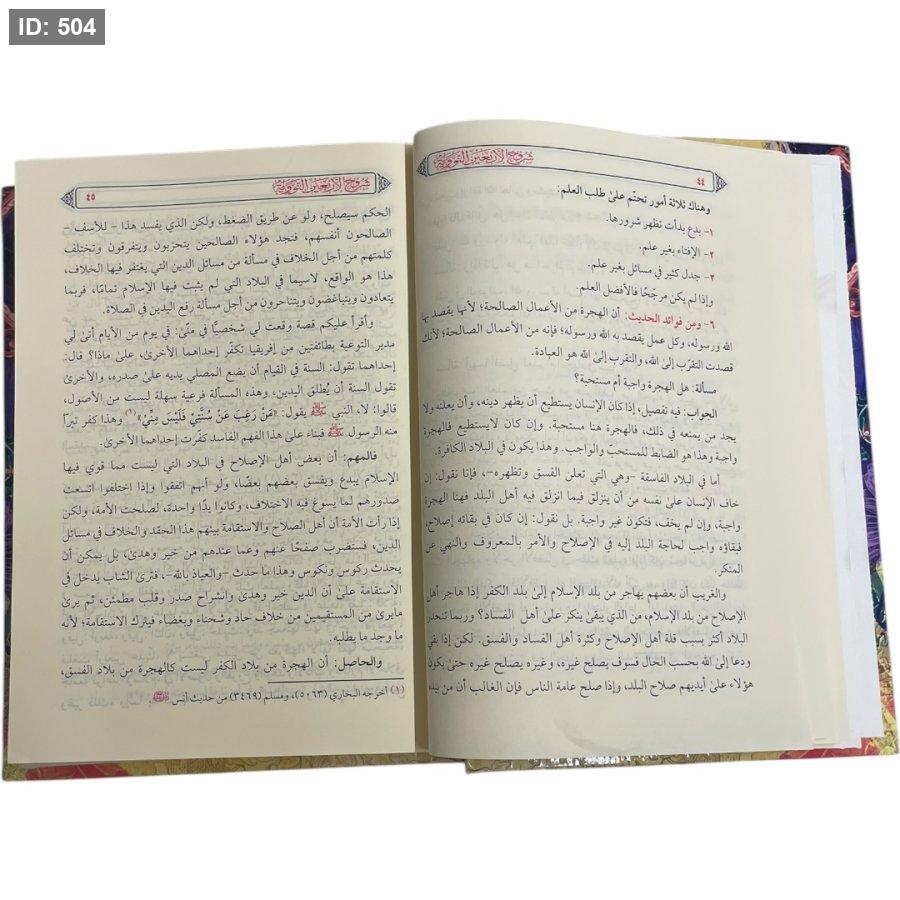 ID: 504
شروح الأربعين النووية
٤٤
وهناك ثلاثة أمور تحتّم علىٰ طلب العلم:
١- بدع بدأت تظهر شرورها.
٢- الإفتاء بغير علم.
٣- جدل كثير في مسائل بغير علم.
وإذا لم يكن مرجّحًا فالأفضل العلم.
٦- ومن فوائد الحديث: أن الهجرة من الأعمال الصالحة؛ لأنها يقصد بها
الله ورسوله، وكل عمل يقصد به الله ورسوله؛ فإنه من الأعمال الصالحة؛ لأنك
قصدت التقرّب إلىٰ الله، والتقرب إلىٰ الله هو العبادة.
مسألة: هل الهجرة واجبة أم مستحبة؟
الجواب: فيه تفصيل، إذا كان الإنسان يستطيع أن يظهر دينه، وأن يعلنه ولا
يجد من يمنعه في ذلك، فالهجرة هنا مستحبة. وإن كان لايستطيع فالهجرة
واجبة وهذا هو الضابط للمستحب والواجب. وهذا يكون في البلاد الكافرة.
أما في البلاد الفاسقة -وهي التي تعلن الفسق وتظهره-، فإنا نقول: إن
خاف الإنسان علىٰ نفسه من أن ينزلق فيما انزلق فيه أهل البلد فهنا الهجرة
واجبة، وإن لم يخف، فتكون غير واجبة. بل نقول: إن كان في بقائه إصلاح،
فبقاؤه واجب لحاجة البلد إليه في الإصلاح والأمر بالمعروف والنهي عن
المنكر.
والغريب أن بعضهم يهاجر من بلد الإسلام إلىٰ بلد الكفر إذا هاجر أهل
الإصلاح من بلد الإسلام، من الذي يبقىٰ ينكر علىٰ أهل الفساد؟ وربما تنحدر
البلاد أكثر بسبب قلة أهل الإصلاح وكثرة أهل الفساد والفسق. لكن إذا بقي
ودعا إلىٰ الله بحسب الحال فسوف يصلح غيره، وغيره يصلح غيره حتىٰ يكون
هؤلاء علىٰ أيديهم صلاح البلد، وإذا صلح عامة الناس فإن الغالب أن من بيده
شروح الأربعين النووية
٤٥
الحكم سيصلح، ولو عن طريق الضغط، ولكن الذي يفسد هذا - للأسف -
الصالحون أنفسهم، فتجد هؤلاء الصالحين يتحزبون ويتفرقون وتختلف
كلمتهم من أجل الخلاف في مسألة من مسائل الدين التي يغتفر فيها الخلاف،
هذا هو الواقع، لاسيما في البلاد التي لم يثبت فيها الإسلام تمامًا، فربما
يتعادون ويتباغضون ويتناحرون من أجل مسألة رفع اليدين في الصلاة.
وأقرأ عليكم قصة وقعت لي شخصيًّا في منًىٰ: في يوم من الأيام أتىٰ لي
مدير التوعية بطائفتين من إفريقيا تكفّر إحداهما الأخرىٰ، علىٰ ماذا؟ قال:
إحداهما تقول: السنة في القيام أن يضع المصلي يديه علىٰ صدره، والأخرىٰ
تقول السنة أن يُطلق اليدين، وهذه المسألة فرعية سهلة ليست من الأصول،
قالوا: لا، النبي ﷺ يقول: «مَنْ رَغِبَ عَنْ سُنَّتِيْ فَلَيْسَ مِنِّيْ» (١) وهذا كفر تبرّأ
منه الرسول ﷺ فبناء علىٰ هذا الفهم الفاسد كفّرت إحداهما الأخرىٰ.
فالمهم: أن بعض أهل الإصلاح في البلاد التي ليست مما قوي فيها
الإسلام يبدع ويفسق بعضهم بعضًا، ولو أنهم اتفقوا وإذا اختلفوا اتسعت
صدورهم لما يسوغ فيه الاختلاف، وكانوا يدًا واحدة، لصلحت الأمة، ولكن
إذا رأت الأمة أن أهل الصلاح والاستقامة بينهم هذا الحقد والخلاف في مسائل
الدين، فستضرب صفحًا عنهم وعما عندهم من خير وهدىٰ، بل يمكن أن
يحدث ركوس ونكوس وهذا ما حدث -والعياذ بالله-، فترىٰ الشاب يدخل في
الاستقامة علىٰ أن الدين خير وهدىٰ وانشراح صدر وقلب مطمئن، ثم يرىٰ
مايرىٰ من المستقيمين من خلاف حاد وشحناء وبغضاء فيترك الاستقامة؛ لأنه
ما وجد ما يطلبه.
والحاصل: أن الهجرة من بلاد الكفر ليست كالهجرة من بلاد الفسق،
(١) أخرجه البخاري (٥٠٦٣)، ومسلم (٣٤٦٩) من حديث أنس ﷺ.